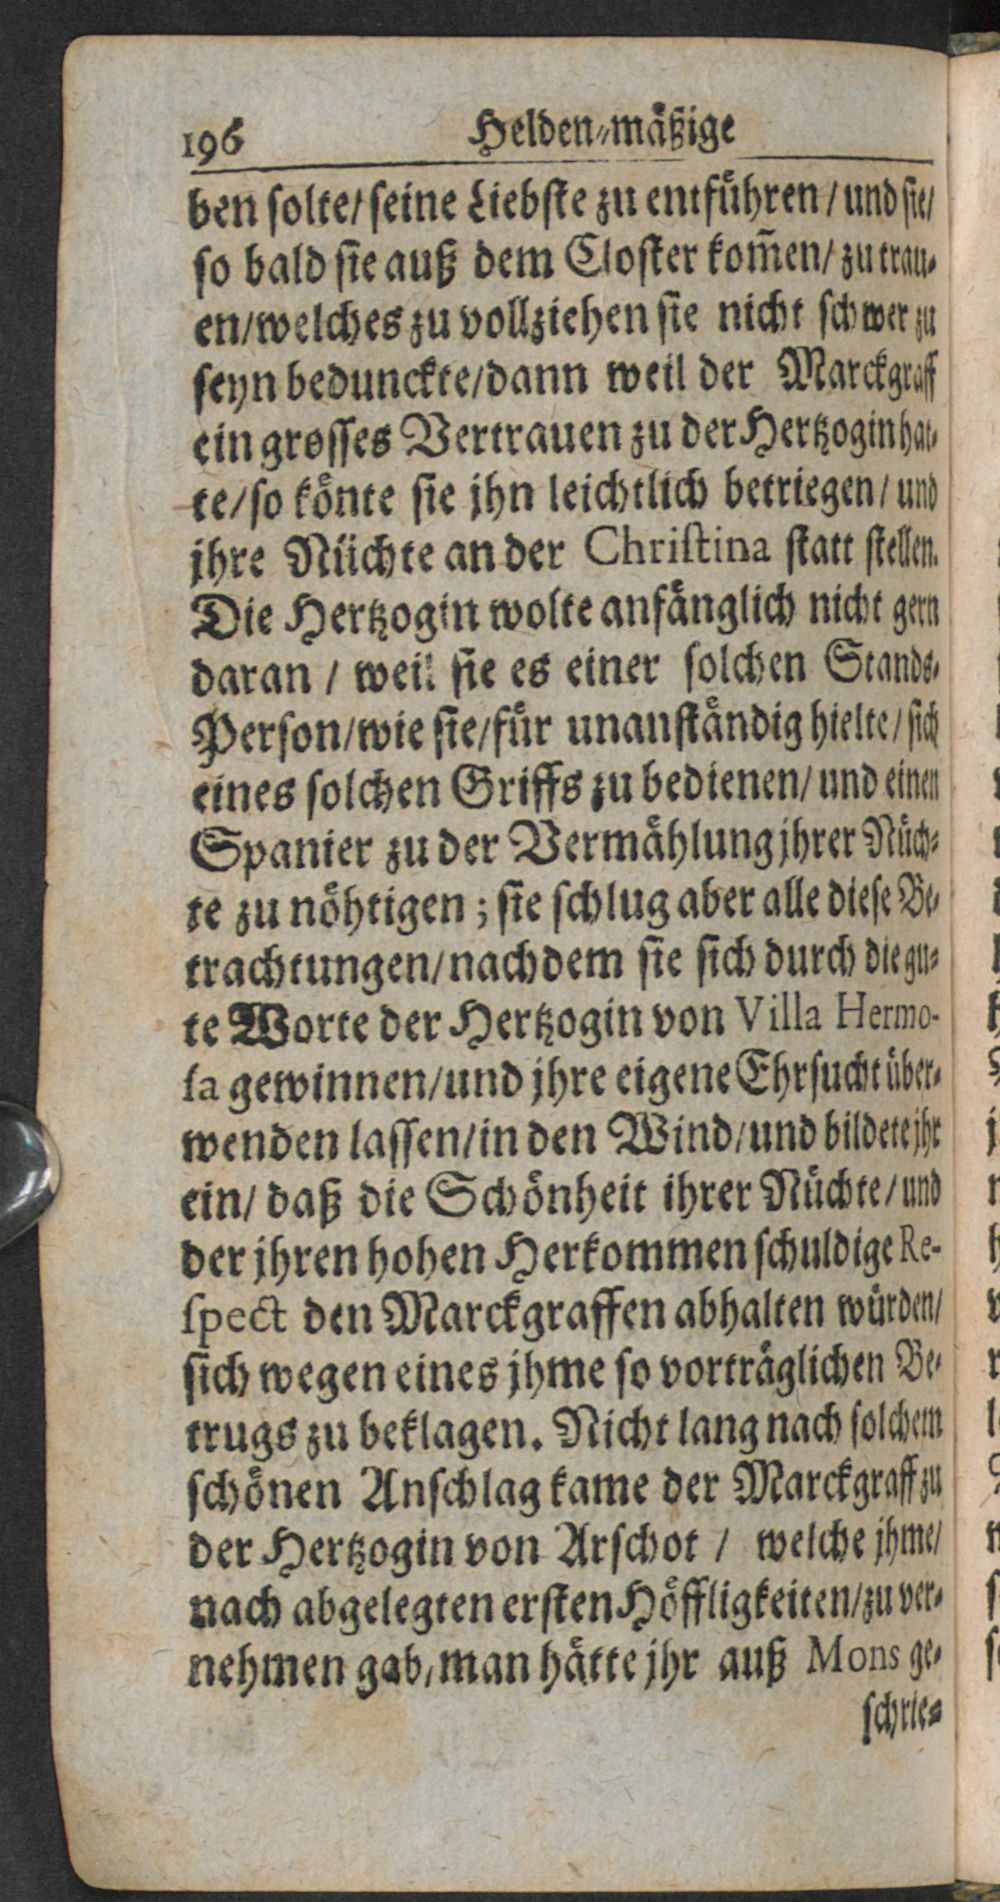 196 Helden-mäßige
ben solte/ seine Liebste zu entführen / und sie/
so bald sie auß dem Closter kom̃en/ zu trau-
en/welches zu vollziehen sie nicht schwer zu
seyn bedunckte/dann weil der Marckgraff
ein grosses Vertrauen zu der Hertzogin hat-
te/so könte sie jhn leichtlich betriegen/ und
jhre Nüchte an der Christina statt stellen.
Die Hertzogin wolte anfänglich nicht gern
daran / weil sie es einer solchen Stands-
Person/wie sie/für unanständig hielte/ sich
eines solchen Griffs zu bedienen/ und einen
Spanier zu der Vermählung jhrer Nüch-
te zu nöhtigen; sie schlug aber alle diese Be-
trachtungen/nachdem sie sich durch die gu-
te Worte der Hertzogin von Villa Hermo-
sa gewinnen/und jhre eigene Ehrsucht über-
wenden lassen/in den Wind/und bildete jhr
ein/ daß die Schönheit ihrer Nüchte/ und
der jhren hohen Herkommen schuldige Re-
spect den Marckgraffen abhalten würden/
sich wegen eines jhme so vorträglichen Be-
trugs zu beklagen. Nicht lang nach solchem
schönen Anschlag kame der Marckgraff zu
der Hertzogin von Arschot / welche jhme/
nach abgelegten ersten Höffligkeiten/zu ver-
nehmen gab, man hätte jhr auß Mons ge-
schrie-